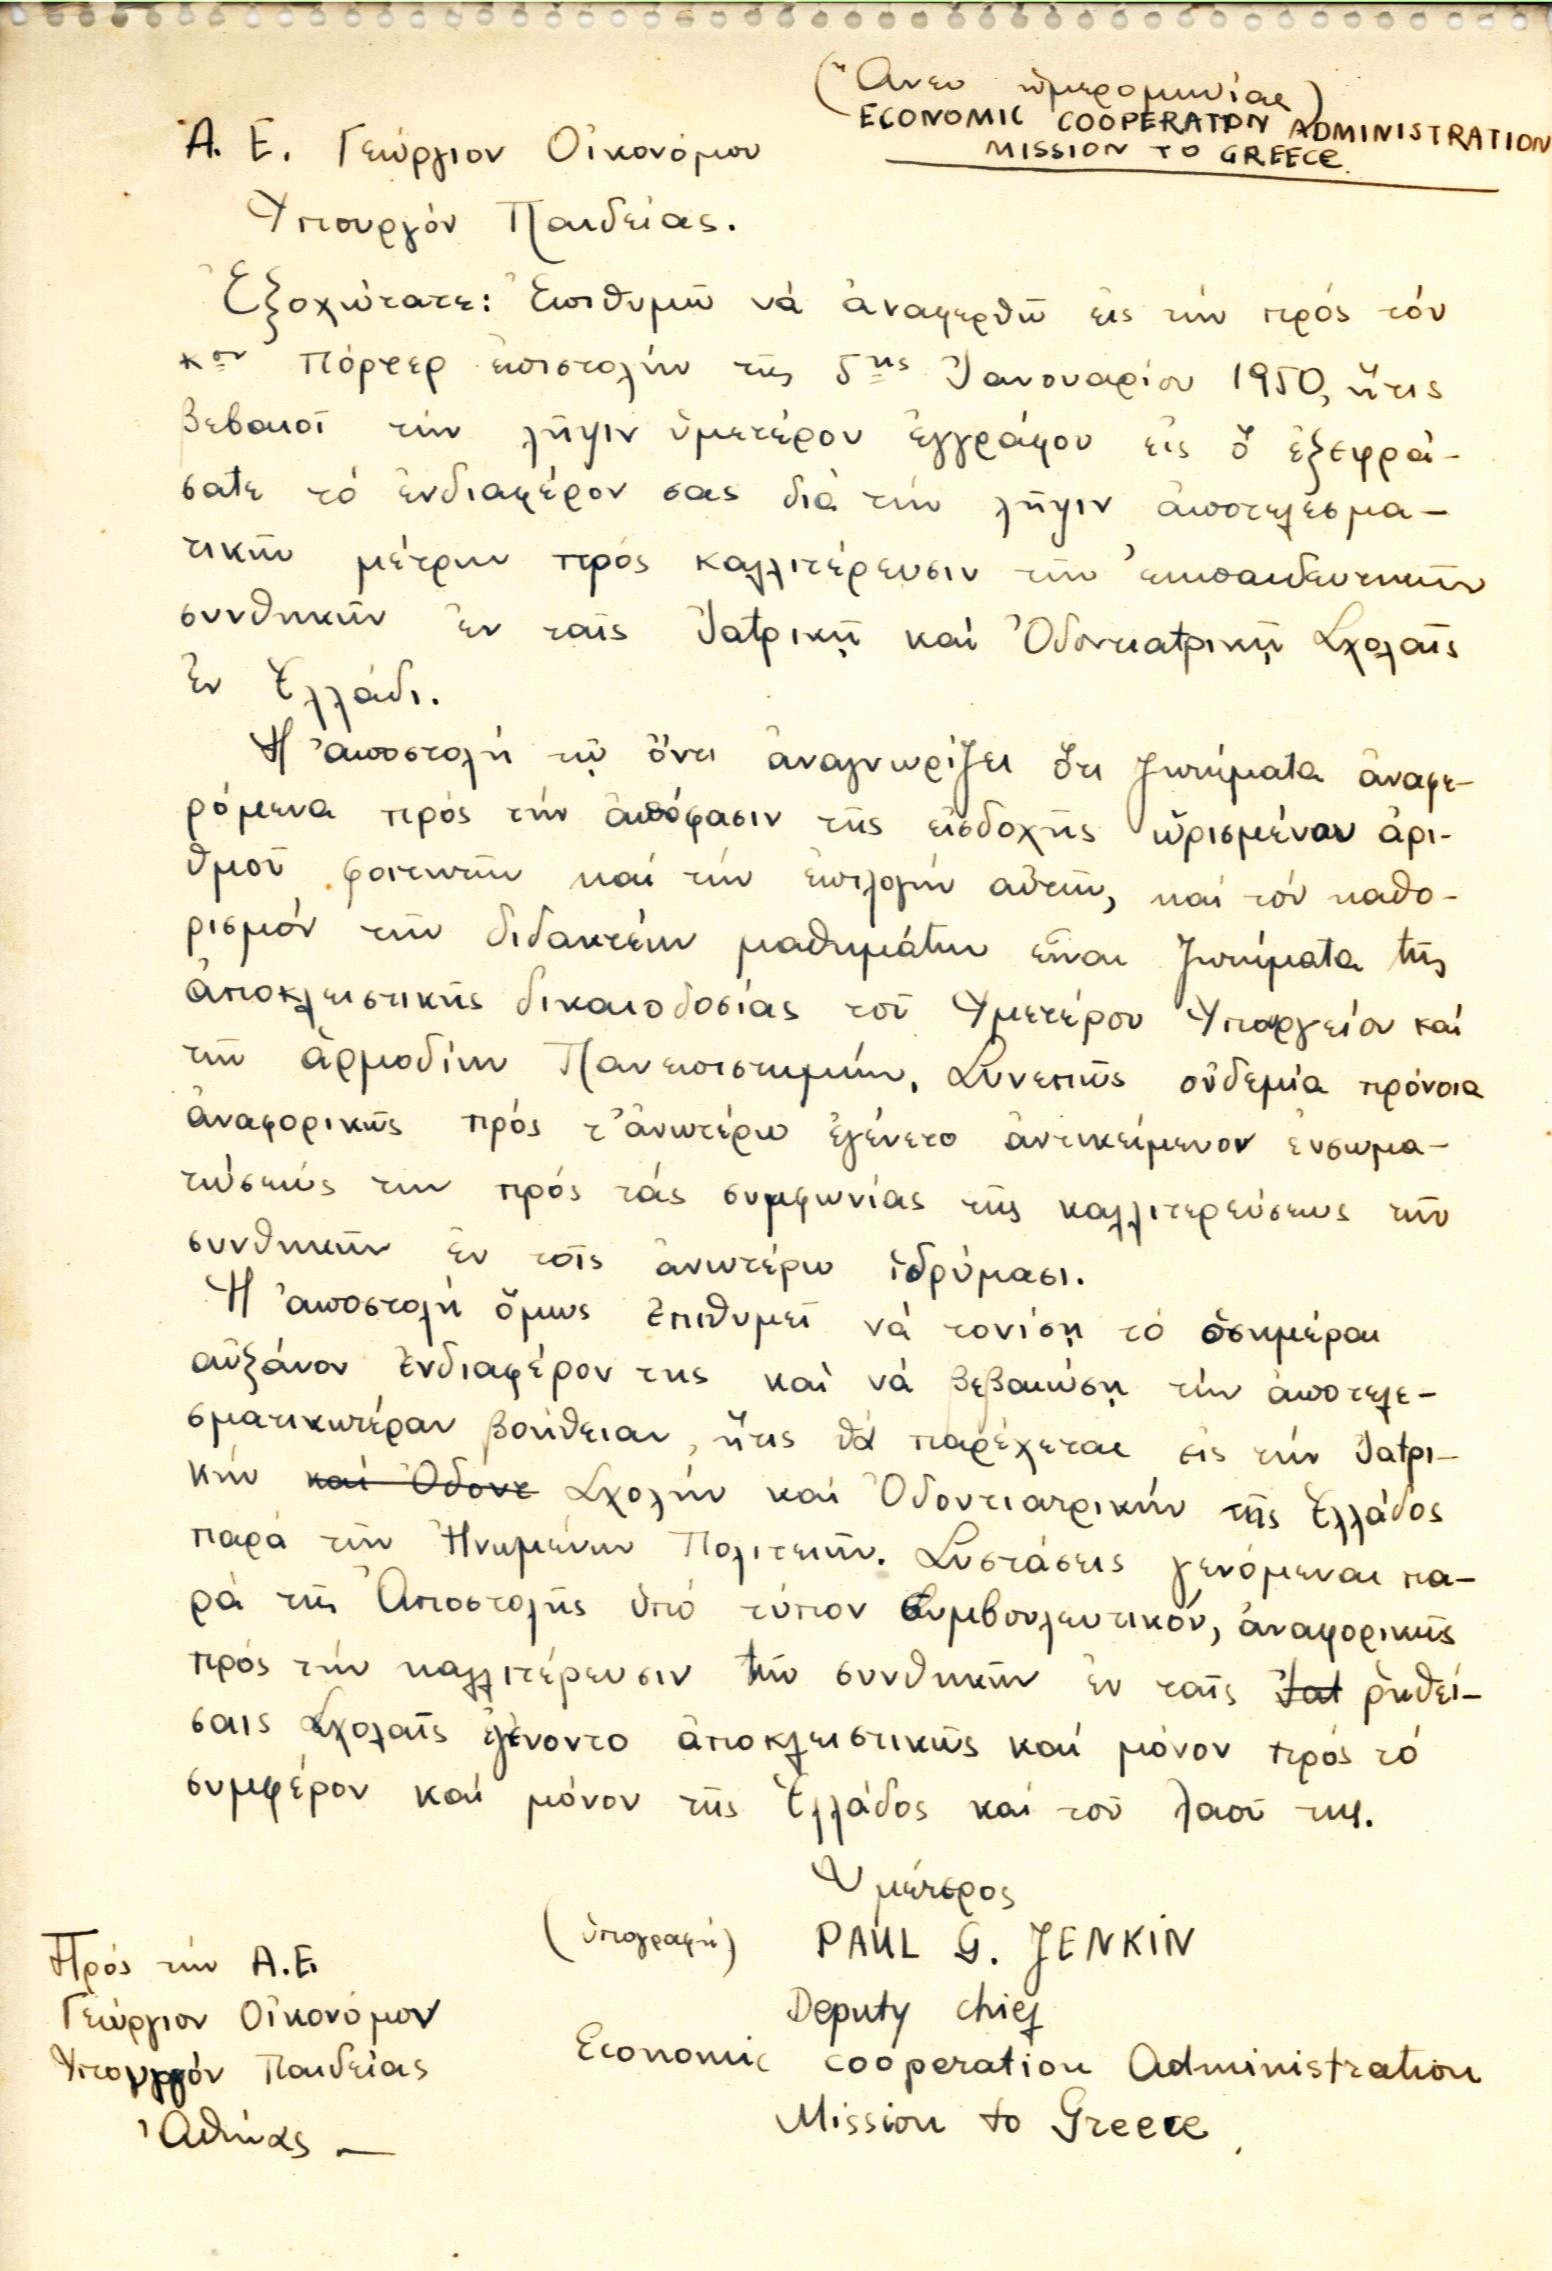 (Ἄνευ ἡμερομηνίας)
ECONOMIC COOPERATION ADMINISTRATION
MISSION TO GREECE.
Α. Ε. Γεώργιον Οἰκονόμου
Ὑπουργόν Παιδείας.
Ἐξοχώτατε: Ἐπιθυμῶ νά ἀναφερθῶ εἰς τήν πρός τόν
κον Πόρτερ ἐπιστολήν τῆς 5ης Ἰανουαρίου 1950, ἥτις
βεβαιοῖ τήν λῆψιν ὑμετέρου ἐγγράφου εἰς ὅ ἐξεφρά-
σατε τό ἐνδιαφέρον σας διά τήν λῆψιν ἀποτελεσμα-
τικῶν μέτρων πρός καλλιτέρευσιν τῶν ἐκπαιδευτικῶν
συνθηκῶν ἐν ταῖς Ἰατρικῇ καί Ὀδοντιατρικῇ Σχολαῖς
ἐν Ἑλλάδι.
Ἡ ἀποστολή τῷ ὄντι ἀναγνωρίζει ὅτι ζητήματα ἀναφε-
ρόμενα πρός τήν ἀπόφασιν τῆς εἰσδοχῆς ὡρισμένου ἀρι-
θμοῦ φοιτητῶν καί τήν ἐπιλογήν αὐτῶν, καί τόν καθο-
ρισμόν τῶν διδακτέων μαθημάτων εἶναι ζητήματα τῆς
ἀποκλειστικῆς δικαιοδοσίας τοῦ Ὑμετέρου Ὑπουργείου καί
τῶν ἁρμοδίων Πανεπιστημίων. Συνεπῶς οὐδεμία πρόνοια
ἀναφορικῶς πρός τ' ἀνωτέρω ἐγένετο ἀντικείμενον ἐνσωμα-
τώσεώς των πρός τάς συμφωνίας τῆς καλλιτερεύσεως τῶν
συνθηκῶν ἐν τοῖς ἀνωτέρω ἱδρύμασι.
Ἡ ἀποστολή ὅμως ἐπιθυμεῖ νά τονίσῃ τό ὁσημέραι
αὐξάνον ἐνδιαφέρον της καί νά βεβαιώσῃ τήν ἀποτελε-
σματικωτέραν βοήθειαν, ἥτις θά παρέχεται εἰς τήν Ἰατρι-
κήν καί Ὀδοντ Σχολήν καί Ὀδοντιατρικήν τῆς Ἑλλάδος
παρά τῶν Ἡνωμένων Πολιτειῶν. Συστάσεις γενόμεναι πα-
ρά τῆς Ἀποστολῆς ὑπό τύπον συμβουλευτικόν, ἀναφορικῶς
πρός τήν καλλιτέρευσιν τῶν συνθηκῶν ἐν ταῖς Ἰατ ρηθεί-
σαις Σχολαῖς ἐγένοντο ἀποκλειστικῶς καί μόνον πρός τό
συμφέρον καί μόνον τῆς Ἑλλάδος καί τοῦ λαοῦ της.
Ὑμέτερος
(ὑπογραφή) PAUL G. JENKIN
Deputy chief
Economic cooperation Administration
Mission to Greece,
Πρός τήν Α.Ε.
Γεώργιον Οἰκονόμου
Ὑπουργόν Παιδείας
Ἀθήνας —